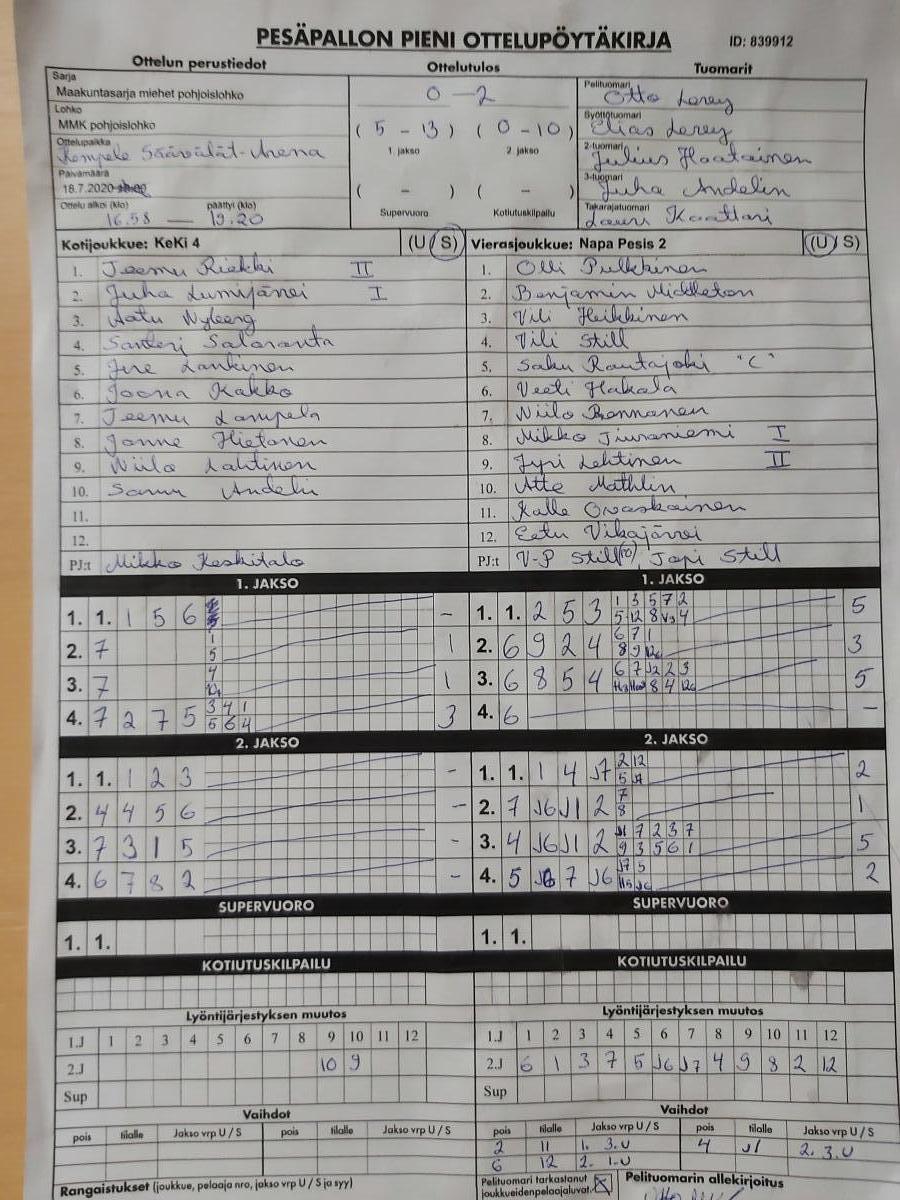 PESÄPALLON PIENI OTTELUPÖYTÄKIRJA
ID: 839912
Ottelun perustiedot
Ottelutulos
Tuomarit
Sarja
Maakuntasarja miehet pohjoislohko
Lohko
MMK pohjoislohko
Ottelupaikka
Kempele Säävälät-Arena
Päivämäärä
18.7.2020
Ottelu alkoi (klo) päättyi (klo)
16.58 — 19.20
0 - 2
( 5 - 13 ) ( 0 - 10 )
1. jakso 2. jakso
( - ) ( - )
Supervuoro Kotiutuskilpailu
Pelituomari
Otto Lerey
Syöttötuomari
Elias Lerey
2-tuomari
Julius Haatainen
3-tuomari
Juha Andelin
Takarajatuomari
Lauri Kaattari
Kotijoukkue: KeKi 4 (U / S)
1. Teemu Riekki II
2. Juha Lumijärvi I
3. Aatu Nyberg
4. Santeri Salaranta
5. Jire Lankinen
6. Joona Kakko
7. Teemu Lampela
8. Janne Hietanen
9. Niilo Lahtinen
10. Samu Andelin
11.
12.
PJ:t Mikko Keskitalo
Vierasjoukkue: Napa Pesis 2 (U / S)
1. Olli Pulkkinen
2. Benjamin Middleton
3. Vili Heikkinen
4. Vili Still
5. Saku Rautajoki "C"
6. Veeti Hakala
7. Niilo Ronnanen
8. Mikko Jiuraniemi I
9. Jyri Lehtinen II
10. Atte Mathlin
11. Kalle Ovaskainen
12. Eetu Vikajärvi
PJ:t V-P Still, Jopi Still
1. JAKSO
1. 1. 1 5 6 -
2. 7 1 5 1
3. 7 4 1
4. 7 2 7 5 3 4 1 5 6 4 3
2. JAKSO
1. 1. 1 2 3 -
2. 4 4 5 6 -
3. 7 3 1 5 -
4. 6 7 8 2 -
SUPERVUORO
1. 1.
KOTIUTUSKILPAILU
Lyöntijärjestyksen muutos
1.J 1 2 3 4 5 6 7 8 9 10 11 12
2.J 10 9
Sup
Vaihdot
pois tilalle Jakso vrp U / S pois tilalle Jakso vrp U / S
Rangaistukset (joukkue, pelaaja nro, jakso vrp U / S ja syy)
1. JAKSO
1. 1. 2 5 3 1 3 5 7 2 5 12 8 4 5
2. 6 9 2 4 6 7 1 8 9 3
3. 6 8 5 4 6 7 J2 2 3 8 4 5
4. 6 -
2. JAKSO
1. 1. 1 4 J7 2 12 5 2
2. 7 J6 J1 2 7 8 1
3. 4 J6 J1 2 J1 7 2 3 7 9 3 5 6 1 5
4. 5 J6 7 J6 J7 5 2
SUPERVUORO
1. 1.
KOTIUTUSKILPAILU
Lyöntijärjestyksen muutos
1.J 1 2 3 4 5 6 7 8 9 10 11 12
2.J 6 1 3 7 5 J6 J7 4 9 8 2 12
Sup
Vaihdot
pois tilalle Jakso vrp U / S pois tilalle Jakso vrp U / S
2 11 1. 3.U 4 J1 2. 3.U
6 12 2. 1.U
Pelituomari tarkastanut joukkueidenpelaajaluvat:
Pelituomarin allekirjoitus